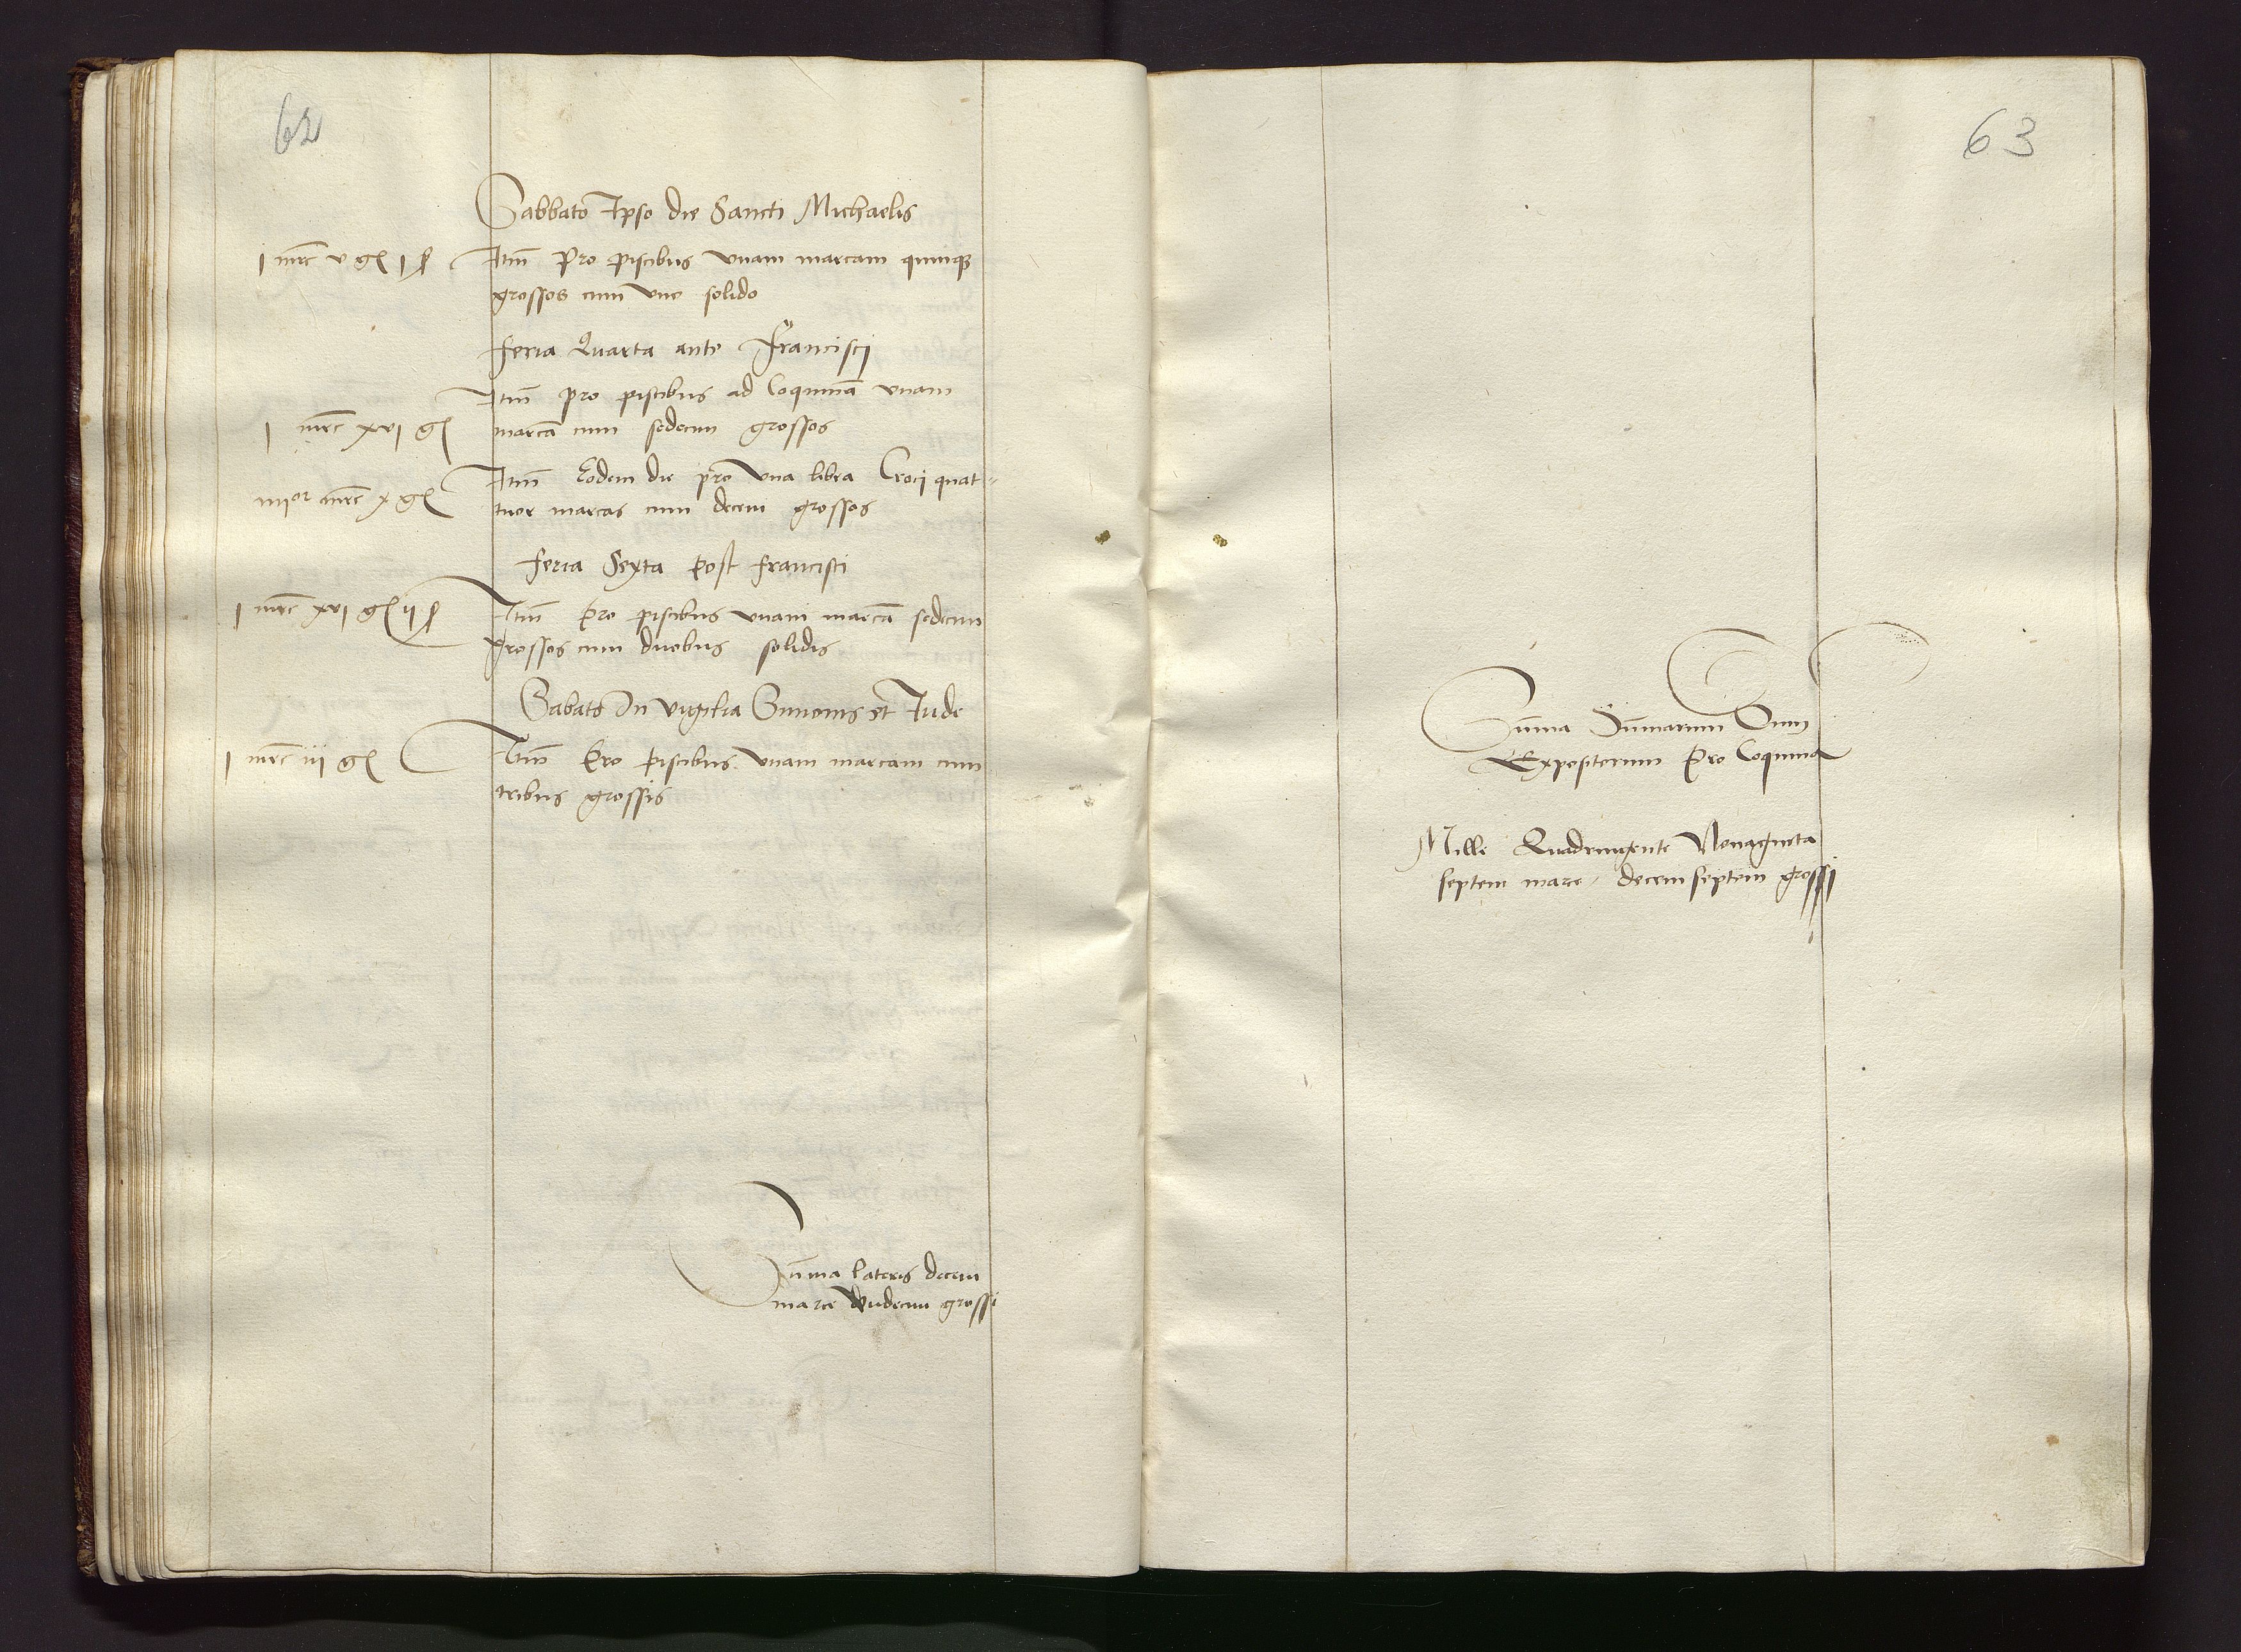 62
Sabbato Ipso die Sancti Michaelis
I mrc v gs I ß Itm Pro piscibus vnam marcam quinqz
grossos cum vno solido
feria Quarta ante Francisci
Itm pro piscibus ad Coquinā vnam
I mrc xvI gs marcā cum sedecim grossos
Itm Eodem die pro vna libra Croci quat-
iiiior mrc x gs tuor marcas cum decem grossos
feria Sexta post francisci
I mrc xvI gs ii ß Itm Pro piscibus vnam marcā sedecim
grossos cum duobus solidis
Sabato In vigilia Simonis et Jude
I mrc iii gs Itm Pro piscibus vnam marcam cum
tribus grossis
Suma lateris decem
marce Vndecim grossi
63
Suma Sumarum Omnium
Expositorum Pro Coquina
Mille Quadringente Nonaginta
septem marce, decem septem grossi